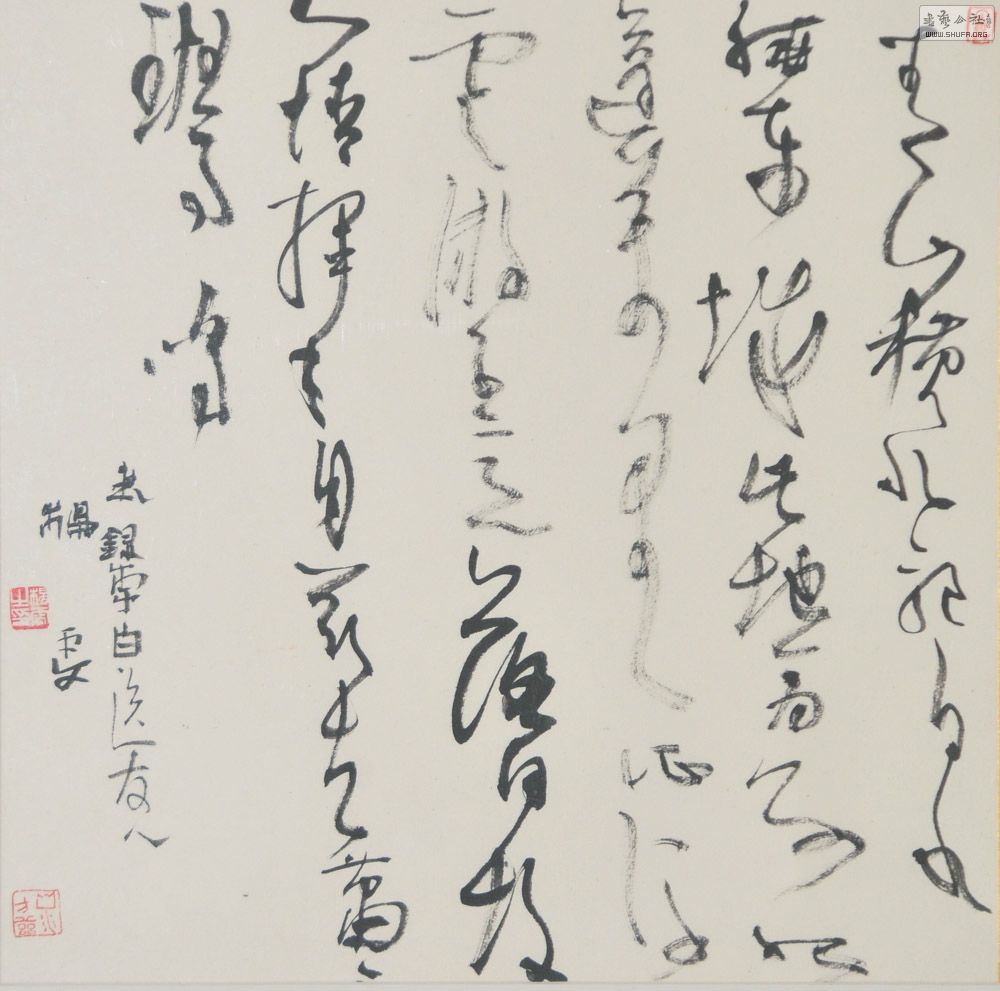 書藝公社
WWW.SHUFA.ORG
青山橫北郭白水
繞東城此地一為別孤
蓬萬里征浮
雲遊子意落日故
人情揮手自茲去蕭
班馬鳴
錄李白送友人